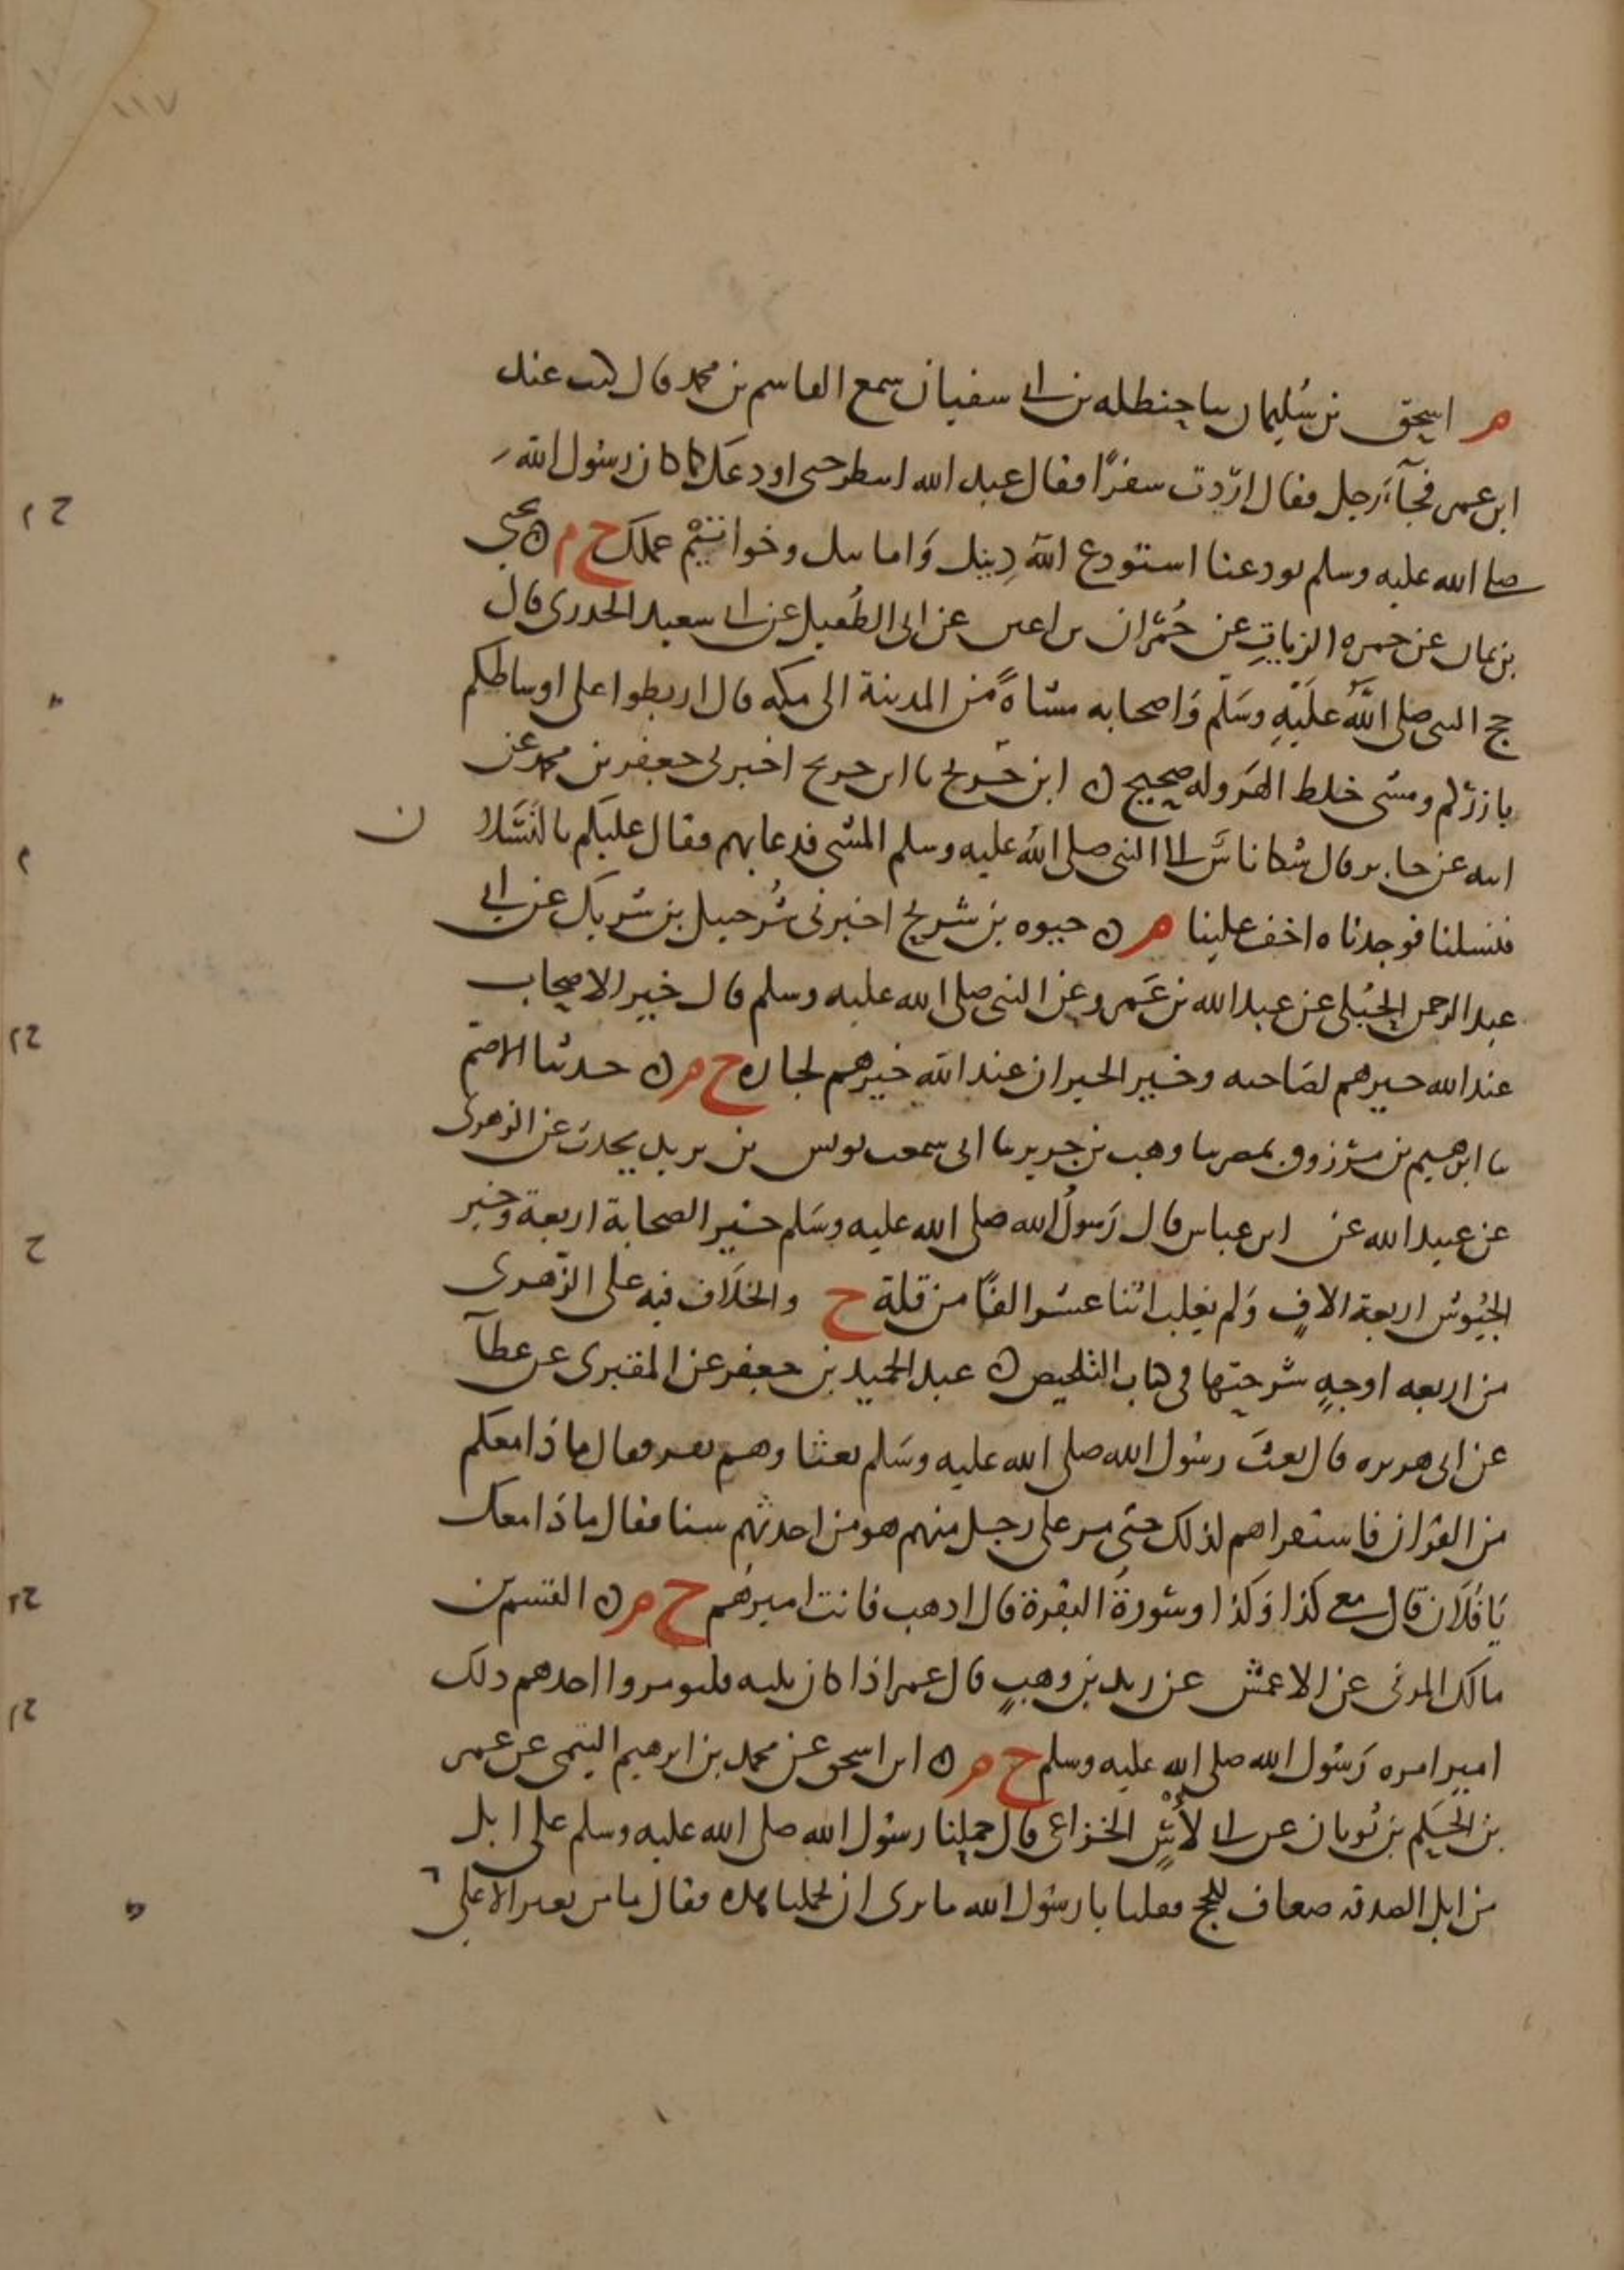 ١١٧
م اسحق بن سليمان سا حنظله بن ابى سفيان سمع القاسم بن محمد قال كنت عند
ابن عمر فجآءَ رجل فقال اردت سفرًا فقال عبد الله انتظر حتى اودعك كما كان رسول الله
صلى الله عليه وسلم يودعنا استودع اللهَ دِينك وَامانتك وخواتيم عملك ح م ن يحيى
بن يمان عن حمزه الزياتِ عن حُمْران بن اعين عن ابى الطُفيل عن ابى سعيد الخدرى قال
حج النبى صلى اللهُ عَليَهِ وسَلم وَاصحابه مشاةً من المدينة الى مكه قال اربطوا على اوساطكم
بازركم ومشى خلط الهَروله صحيح ن ابن جريج نا ابن جريج اخبرنى جعفر بن محمد عن
ابيه عن جابر قال شكا ناسٌ الى النبى صلى الله عليه وسلم المشى فدعا بهم فقال عليكم بالنَسَلان
فنسلنا فوجدناه اخف علينا م ن حيوه بن شريح اخبرنى شُرحبيل بن شريك عن ابى
عبد الرحمن الحُبُلى عن عبد الله بن عَمرو عن النبى صلى الله عليه وسلم قال خير الاصحاب
عند الله خيرهم لصَاحبه وخير الجيران عند الله خيرهم لجاره ح م ن حدثنا الاصم
نا ابرهيم بن مرْزوق بمصر نا وهب بن جرير نا ابى سمعت يونس بن يزيد يحدث عن الزهرى
عن عبيد الله عن ابن عباس قال رَسولُ الله صلى الله عليه وسَلم خير الصحابة اربعة وخير
الجُيُوش اربعة الافٍ وَلم يغلب اثنا عشر الفًا من قلة ح والخلاف فيه على الزهرى
من اربعه اوجهٍ شرحتها فى كتاب التلخيص ن عبد الحميد بن جعفر عن المقبرى عن عطآ
عن ابى هريره قال بعث رسُول الله صلى الله عليه وسَلم بعثا وهم نفر فقال ماذا معكم
من القرْان فاستقراهم لذلك حتى مر على رجل منهم هو من احدثهم سنا فقال ماذا معك
يَا فلَان قال معى كذا وَكذا وسُورةُ البقرة قال اذهب فانت اميرهُم ح م ن القسم بن
مالك المزنى عن الاعمش عن زيد بن وهبٍ قال عمر اذا كان ثلثه فليومروا احدهم ذلك
امير امره رَسُول الله صلى الله عليه وسلم ح م ن ابن اسحق عن محمد بن ابرهيم التيمى عن عمر
بن الحَكم بن ثوبان عن ابى لاسٍ الخزاعى قال حملنا رسُول الله صلى الله عليه وسلم على ابل
من ابل الصدقه ضعاف للحج فقلنا يا رسُول الله ما نرى ان تحملنا هذه فقال ما من بعير الا على
ح م
م
ح م
ح
ح م
ح م